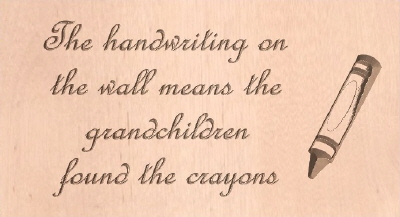 The handwriting on
the wall means the
grandchildren
found the crayons